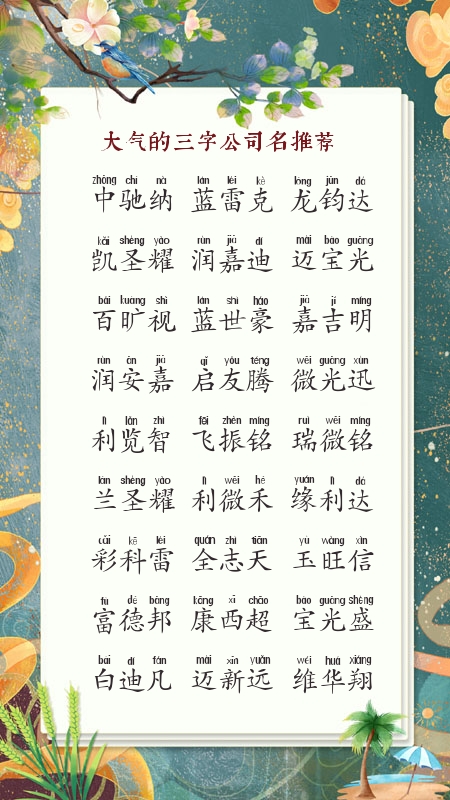 大气的三字公司名推荐
zhōng chí nà lán léi kè lóng jūn dá
中驰纳 蓝雷克 龙钧达
kǎi shèng yào rùn jiā dí mài bǎo guāng
凯圣耀 润嘉迪 迈宝光
bǎi kuàng shì lán shì háo jiā jí míng
百旷视 蓝世豪 嘉吉明
rùn ān jiā qǐ yǒu téng wēi guāng xùn
润安嘉 启友腾 微光迅
lì lǎn zhì fēi zhèn míng ruì wēi míng
利览智 飞振铭 瑞微铭
lán shèng yào lì wēi hé yuán lì dá
兰圣耀 利微禾 缘利达
cǎi kē léi quán zhì tiān yù wàng xìn
彩科雷 全志天 玉旺信
fù dé bāng kāng xī chāo bǎo guāng shèng
富德邦 康西超 宝光盛
bái dí fán mài xīn yuǎn wéi huá xiáng
白迪凡 迈新远 维华翔